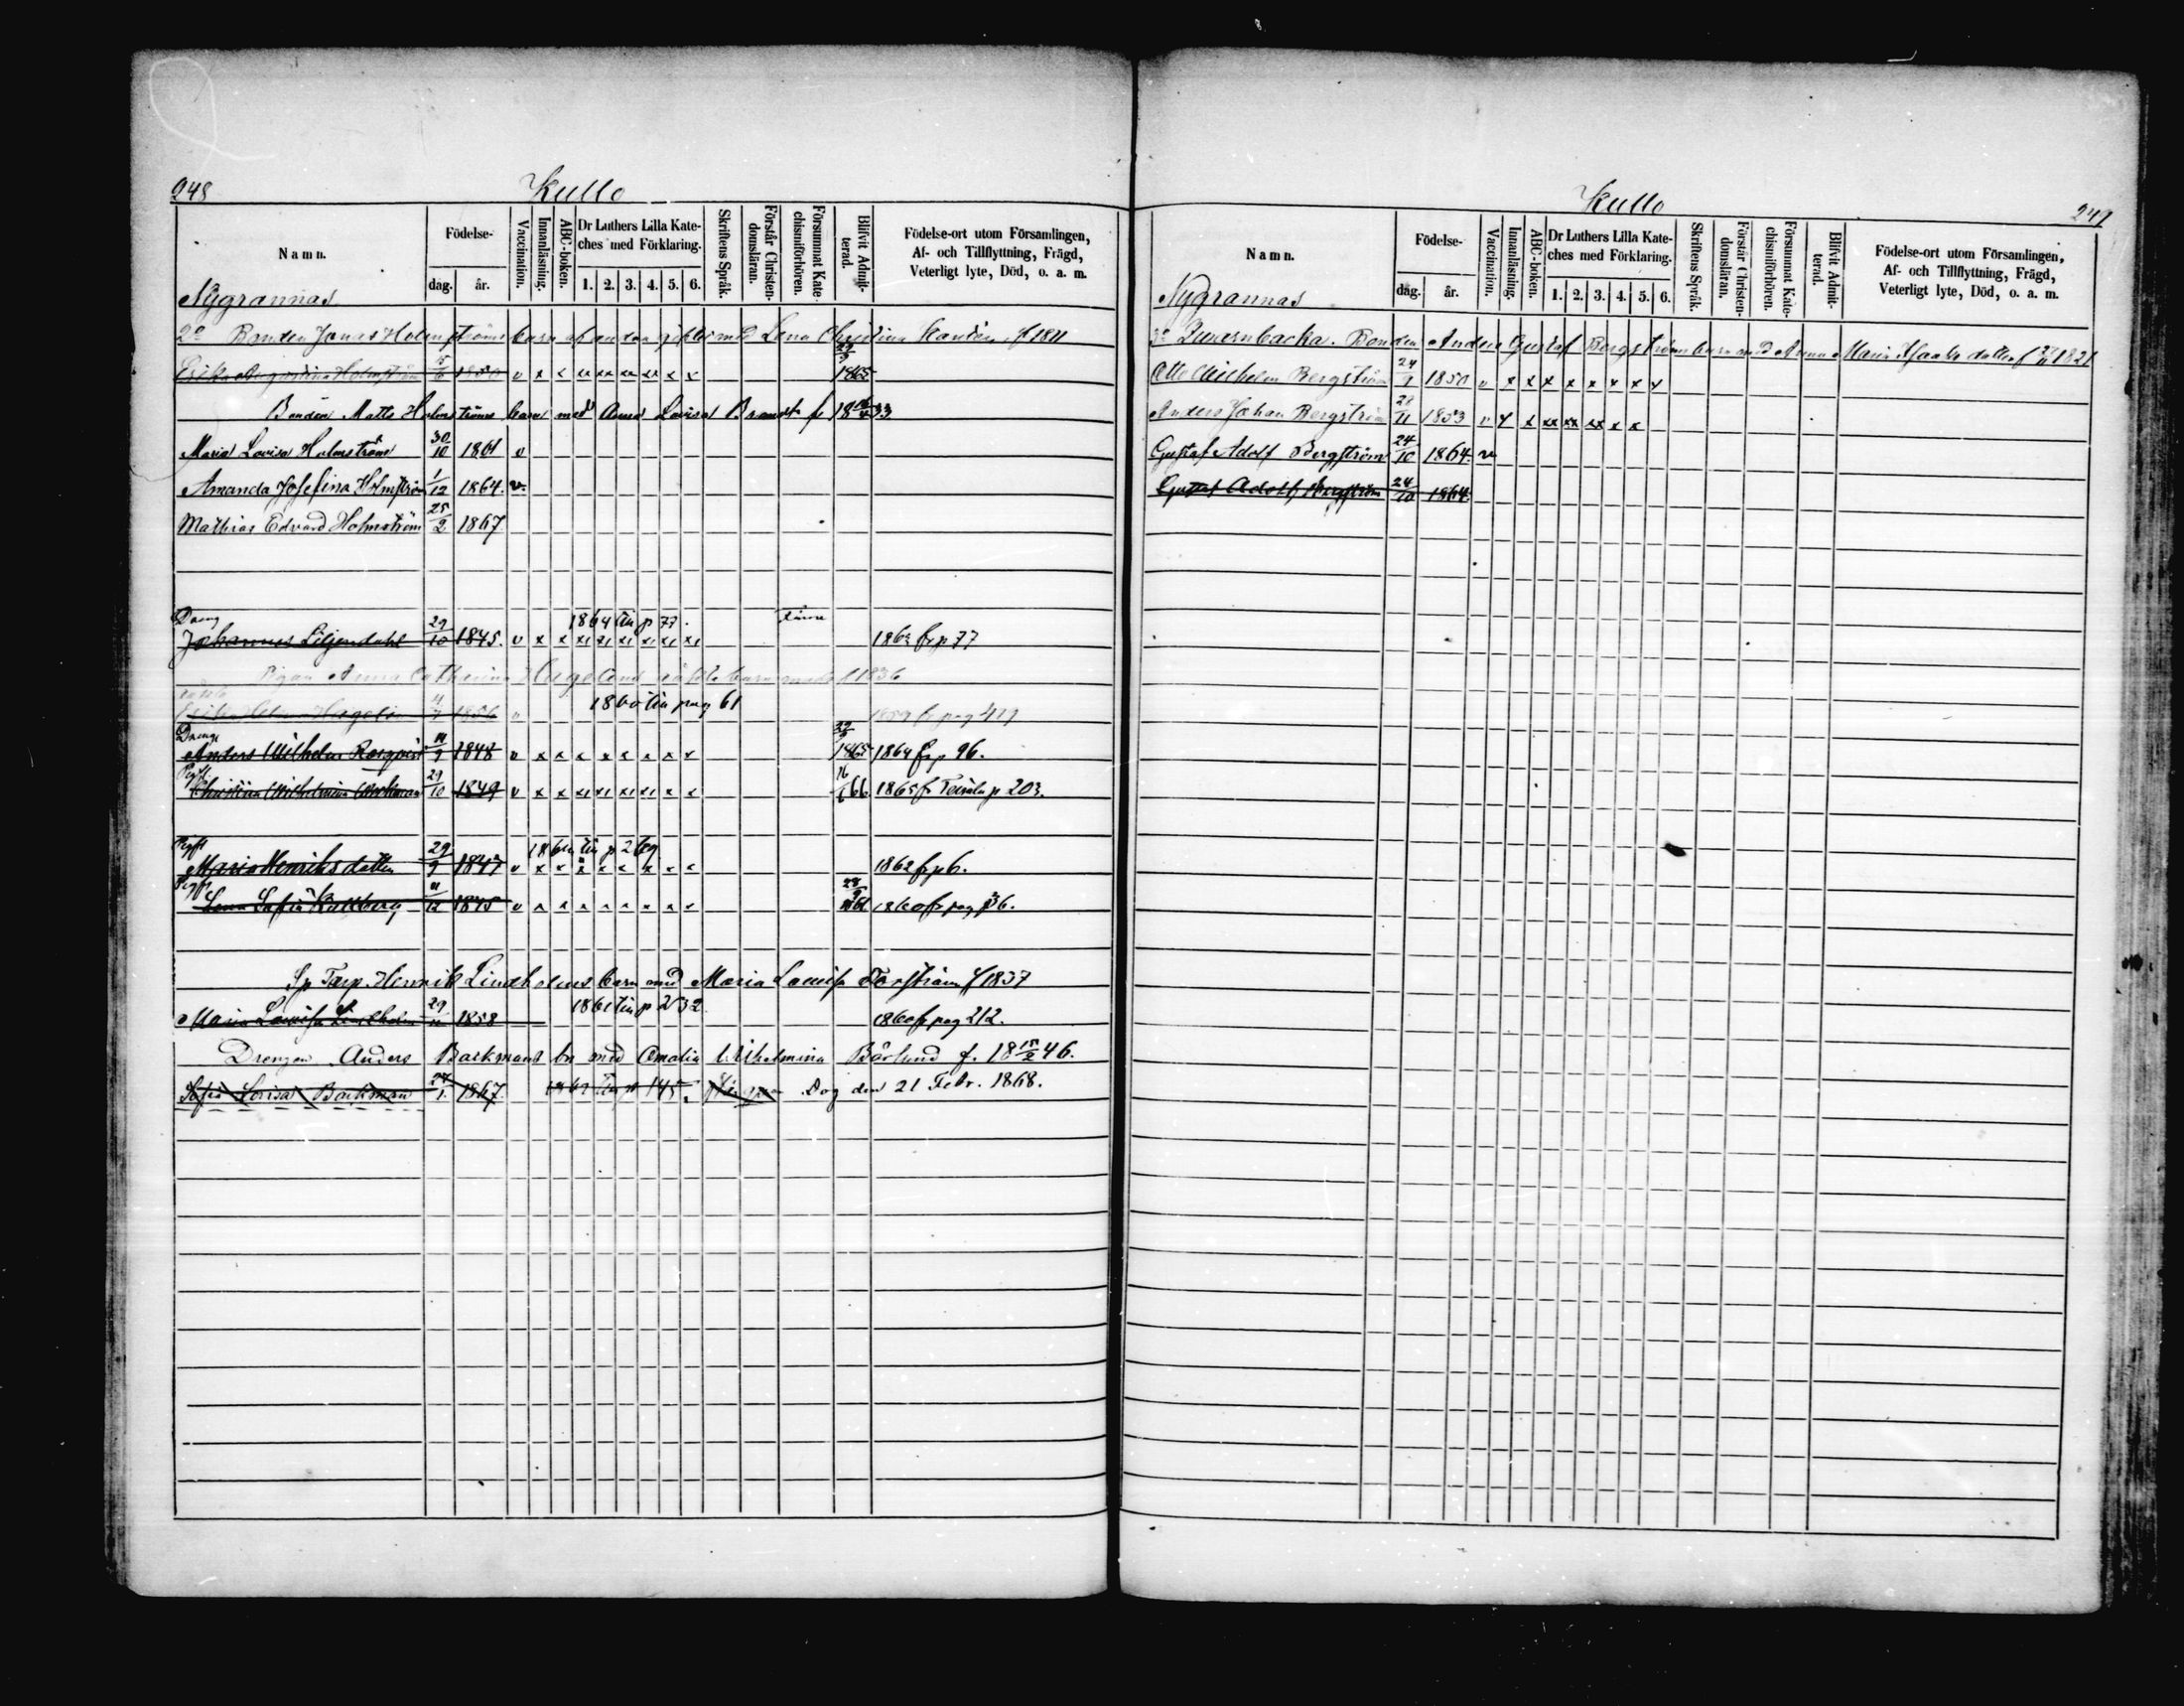 248
Kullo
Namn.
Födelse-
dag.
år.
Vaccination.
Innanläsning.
ABC-boken.
Dr Luthers Lilla Kate-
ches med Förklaring.
1. 2. 3. 4. 5. 6.
Skriftens Språk.
Förstår Christen-
domsläran.
Försummat Kate-
chismiförhören.
Blifvit Admit-
terad.
Födelse-ort utom Församlingen,
Af- och Tillflyttning, Frägd,
Veterligt lyte, Död, o. a. m.
Nygrannas
2o Bonden Jonas Holmströms barn af andra giftet med Lena f 1811
Erika Holmström 1850 v x x xx xx xx xx x x 1865
Bonden Matts Holmströms barn med Anna Lovisa Brandt f 18 33
Maria Lovisa Holmström 30/10 1861 v
Amanda Josefina Holmström 1/12 1864. v.
Mathias Edvard Holmström 25/2 1867
Dreng 1864 till p 77.
Johannes Liljendahl 29/10 1845. v x x 1863 fr p 77
Pigan Anna Catharina Hagelins oäkta barn f 1836
1860 till pag 61
Hagelin 1856 v 1859 fr pag 419
Drenge
Anders Wilhelm Rosqvist 11/9 1848 v x x x x x x x x 22/9 1865 1864 fr p 96.
Pigfl
Christina Wilhelmina 29/10 1849 v x x x x 16/6 66 1865 fr p 203.
Pigfl
Maria Henriksdotter 29/9 1847 v x x x x x x x x 1862 fr p 6.
Pigfl
Lena Sofia Kullberg 11/12 1845 v x x x x x x x x 61 1860 fr pag 36.
Sp Torp. Henrik Lindholms barn med Maria Lovisa Torström f 1837
Maria Lovisa Lindholm 29/11 1858 1861 till p 232 1860 fr pag 212.
Drengen Anders Backmans bn med Amalia Wilhelmina Bärlund f. 18 15/2 46.
Sofia Lovisa Backman 1867. 1867 till p 145. Dog den 21 Febr. 1868.
Kullo
249
Namn.
Födelse-
dag.
år.
Vaccination.
Innanläsning.
ABC-boken.
Dr Luthers Lilla Kate-
ches med Förklaring.
1. 2. 3. 4. 5. 6.
Skriftens Språk.
Förstår Christen-
domsläran.
Försummat Kate-
chismiförhören.
Blifvit Admit-
terad.
Födelse-ort utom Församlingen,
Af- och Tillflyttning, Frägd,
Veterligt lyte, Död, o. a. m.
Nygrannas
3o Bonden Anders Gustaf Bergströms barn med Anna Maria Isaaks dotter f 1821
Otto Wilhelm Bergström 24/9 1850 v x x x x x x x x
Anders Johan Bergström 28/11 1853 v x x xx xx xx x x
Gustaf Adolf Bergström 24/10 1864. v
Gustaf Adolf Bergström 24/10 1864.